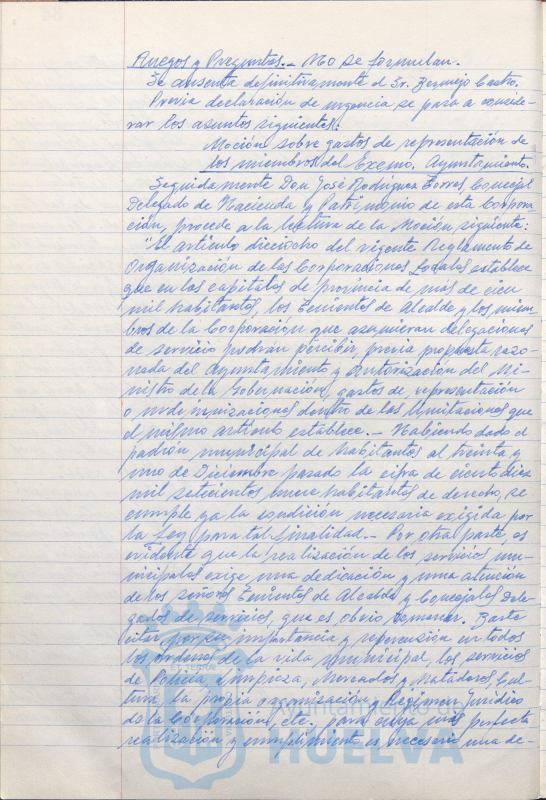 Ruegos y Preguntas.- No se formulan.
Se ausenta definitivamente el Sr. Bermejo Castro.
Previa declaración de urgencia se pasa a conside-
rar los asuntos siguientes:
Moción sobre gastos de representación de
los miembros del Excmo. Ayuntamiento.
Seguidamente Don José Rodríguez Torres, Concejal
Delegado de Hacienda y Patrimonio de esta Corpora-
ción, procede a la lectura de la Moción siguiente:
"El artículo dieciocho del vigente Reglamento de
Organización de las Corporaciones Locales establece
que en las capitales de provincia de más de cien
mil habitantes, los Tenientes de Alcalde y los miem-
bros de la Corporación que asumieran delegaciones
de servicio podrán percibir, previa propuesta razo-
nada del Ayuntamiento y autorización del Mi-
nistro de la Gobernación, gastos de representación
o indemnizaciones dentro de las limitaciones que
el mismo artículo establece.- Habiendo dado el
padrón municipal de habitantes al treinta y
uno de Diciembre pasado la cifra de ciento diez
mil setecientos nueve habitantes de derecho, se
cumple ya la condición necesaria exigida por
la Ley para tal finalidad.- Por otra parte, es
evidente que la realización de los servicios mu-
nicipales exige una dedicación y una atención
de los señores Tenientes de Alcalde y Concejales Dele-
gados de servicios, que es obvio Basta
citar por su importancia y repercusión en todos
los órdenes de la vida municipal, los servicios
de Policía, Limpieza, Mercados y Mataderos, Cul-
tura, la propia organización y Régimen Jurídico
de la Corporación, etc. para cuya más perfecta
realización y cumplimiento es necesario una de-
HUELVA